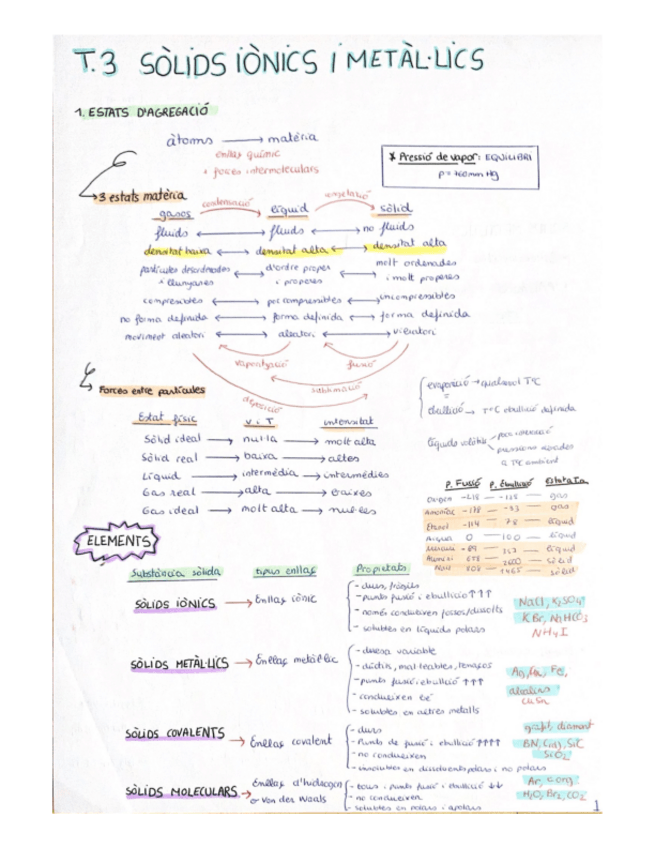 T.3 SÒLIDS IÒNICS I METÀL·LICS
1. ESTATS D'AGREGACIÓ
àtoms → matèria
enllaç químic
+ forces intermoleculars
* Pressió de vapor: EQUILIBRI
P = 760mm Hg
3 estats matèria
gasos líquid sòlid
fluids ↔ fluids ↔ no fluids
densitat baixa ↔ densitat alta ↔ densitat alta
partícules desordenades ↔ d'ordre proper ↔ molt ordenades
i llunyanes i properes i molt properes
compresibles ↔ poc compresibles ↔ uncompresibles
no forma definida ↔ forma definida ↔ forma definida
moviment aleatori ↔ aleatori ↔ vibratori
vaporització fusió
sublimació
deposició
Forces entre partícules
evaporació → qualsevol TºC
ebullició → TºC ebullició definida
líquids volàtils
a TºC ambient
Estat físic V i T intensitat
Sòlid ideal → nul·la → molt alta
Sòlid real → baixa → altes
Líquid → intermèdia → intermèdies
Gas real → alta → baixes
Gas ideal → molt alta → nul·les
P. Fusió P. Ebullició Estat a Ta
Oxigen -218 — gas
Amoníac — -33 — gas
Etanol -114 — 78 — líquid
Aigua 0 — 100 — líquid
Mercuri — líquid
sòlid
NaCl — sòlid
ELEMENTS
Substància sòlida tipus enllaç Propietats
SÒLIDS IÒNICS → Enllaç iònic
- durs, fràgils
- punts fusió i ebullició ↑↑↑
- només condueixen fosos/dissolts
- solubles en líquids polars
NaCl, K₂SO₄
KBr, NaHCO₃
NH₄I
SÒLIDS METÀL·LICS → Enllaç metàl·lic
- duresa variable
- dúctils, mal·leables, tenaços
- punts fusió i ebullició ↑↑↑
- condueixen bé
- solubles en altres metalls
Ag, Cu, Fe,
alcalins
CuSn
SÒLIDS COVALENTS → Enllaç covalent
- durs
- Punts de fusió i ebullició ↑↑↑↑
- no condueixen
- insolubles en dissolvents polars i no polars
grafit, diamant
SiC
SiO₂
SÒLIDS MOLECULARS → Enllaç d'hidrogen
o Van der Waals
- tous i punts fusió i ebullició ↓↓
- no condueixen
- solubles en polars i apolars
H₂O, Br₂, CO₂
1